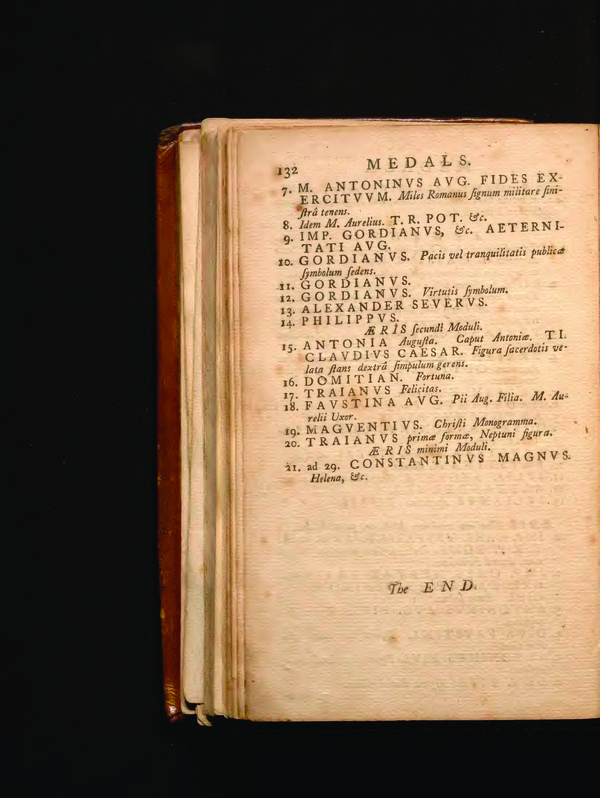 132 MEDALS.
7. M. ANTONINVS AVG. FIDES EX-
ERCITVVM. Miles Romanus ſignum militare ſini-
ſtrâ tenens.
8. Idem M. Aurelius. T. R. POT. &c.
9. IMP. GORDIANVS, &c. AETERNI-
TATI AVG.
10. GORDIANVS. Pacis vel tranquilitatis publicæ
ſymbolum ſedens.
11. GORDIANVS.
12. GORDIANVS. Virtutis ſymbolum.
13. ALEXANDER SEVERVS.
14. PHILIPPVS.
ÆRIS ſecundi Moduli.
15. ANTONIA Auguſta. Caput Antoniæ. TI.
CLAVDIVS CAESAR. Figura ſacerdotis ve-
lata ſtans dextrâ ſimpulum gerens.
16. DOMITIAN. Fortuna.
17. TRAIANVS Felicitas.
18. FAVSTINA AVG. Pii Aug. Filia. M. Au-
relii Uxor.
19. MAGVENTIVS. Chriſti Monogramma.
20. TRAIANVS primæ formæ, Neptuni figura.
ÆRIS minimi Moduli.
21. ad 29. CONSTANTINVS MAGNVS.
Helena, &c.
The END.